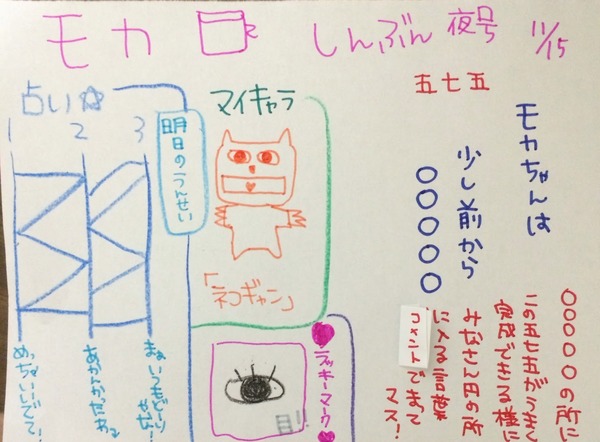 モカ しんぶん 夜号 11/15
五七五
モカちゃんは
少し前から
○○○○○
○○○○○の所に
この五七五がうまく
完成できる様に
みなさん円の所
に入る言葉
コメントで言って
マス!
占い☆
1 2 3
明日のうんせい
めっちゃいいでて!
あかんかったわ
まぁいつもどーり
やな!
マイキャラ
「ネコギャン」
ラッキーマーク
目!